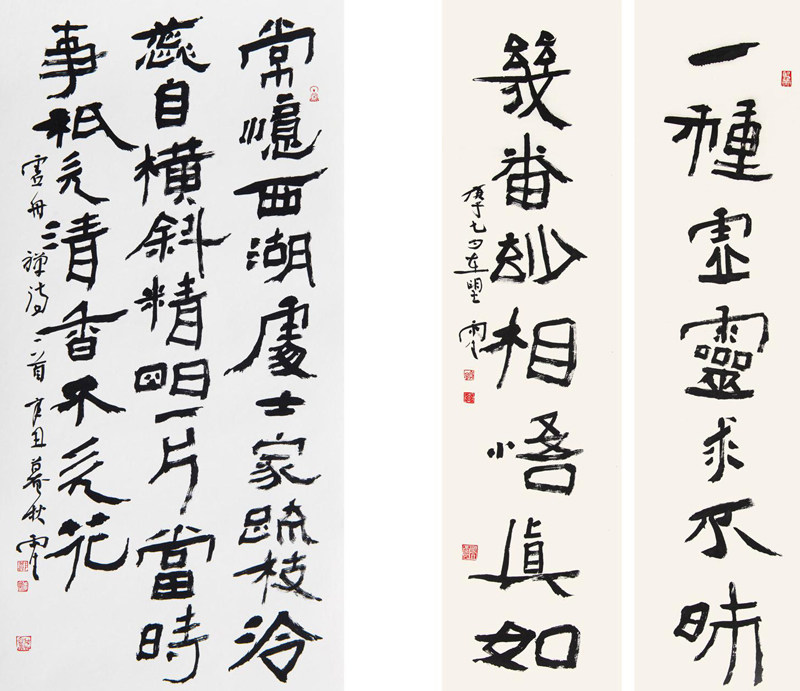 一種虛靈求不昧
幾番妙相悟真如
庚子七月
常憶西湖處士家疏枝冷
蕊自橫斜精明一片當時
事祇見清香不見花
虛舟禪詩首辛丑暮秋